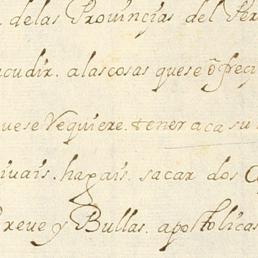 delas Provincias del Per
acudir. alascosas quese ofreci
uese Requiere. tener aca su
ivais. hagais. sacar dos
Breue y Bullas. apostolicas